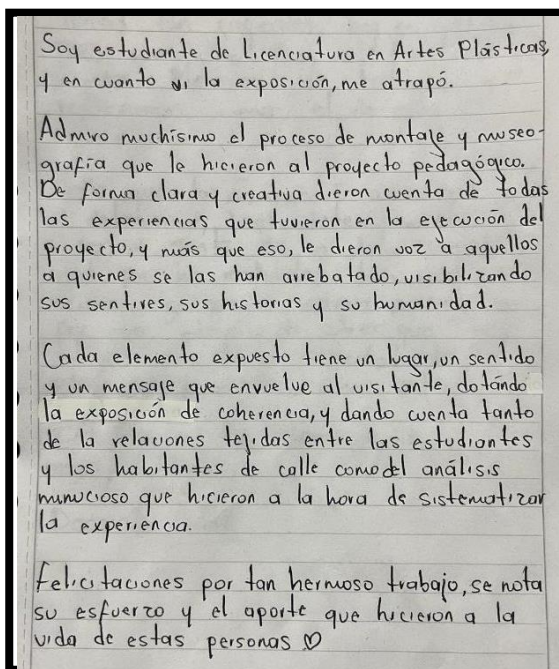 Soy estudiante de Licenciatura en Artes Plásticas,
y en cuanto vi la exposición, me atrapó.
Admiro muchísimo el proceso de montaje y museo-
grafía que le hicieron al proyecto pedagógico.
De forma clara y creativa dieron cuenta de todas
las experiencias que tuvieron en la ejecución del
proyecto, y más que eso, le dieron voz a aquellos
a quienes se las han arrebatado, visibilizando
sus sentires, sus historias y su humanidad.
Cada elemento expuesto tiene un lugar, un sentido
y un mensaje que envuelve al visitante, dotando
la exposición de coherencia, y dando cuenta tanto
de la relaciones tejidas entre las estudiantes
y los habitantes de calle como del análisis
minucioso que hicieron a la hora de sistematizar
la experiencia.
Felicitaciones por tan hermoso trabajo, se nota
su esfuerzo y el aporte que hicieron a la
vida de estas personas ♡